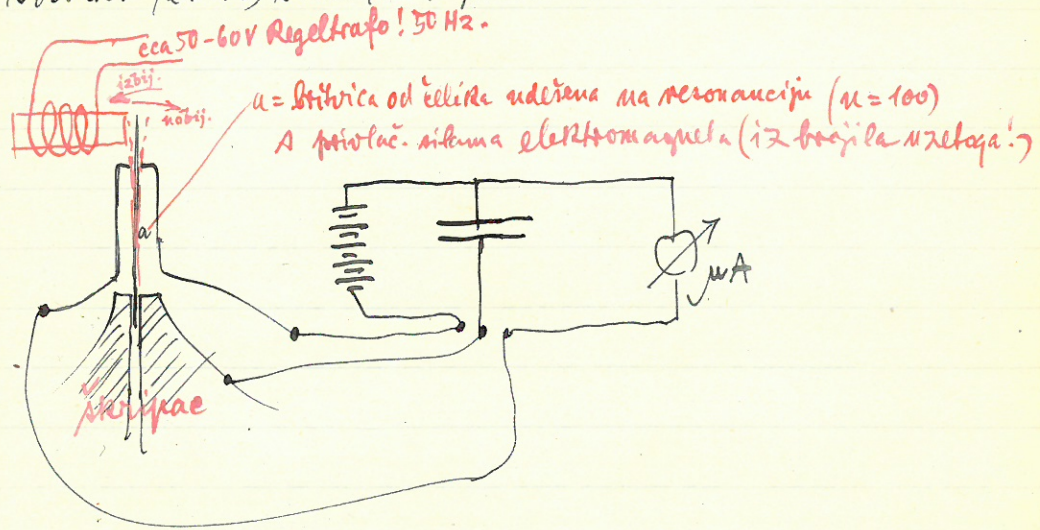 cca 50-60V Regeltrafo! 50 Hz.
izbij.
nabij.
a = britvica od čelika udešena na rezonanciju (n = 100)
A privlač. silama elektromagneta (iz brojila uzetoga!)
a
μA
škripac